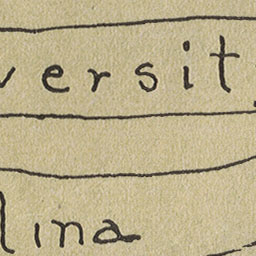 versit
lina